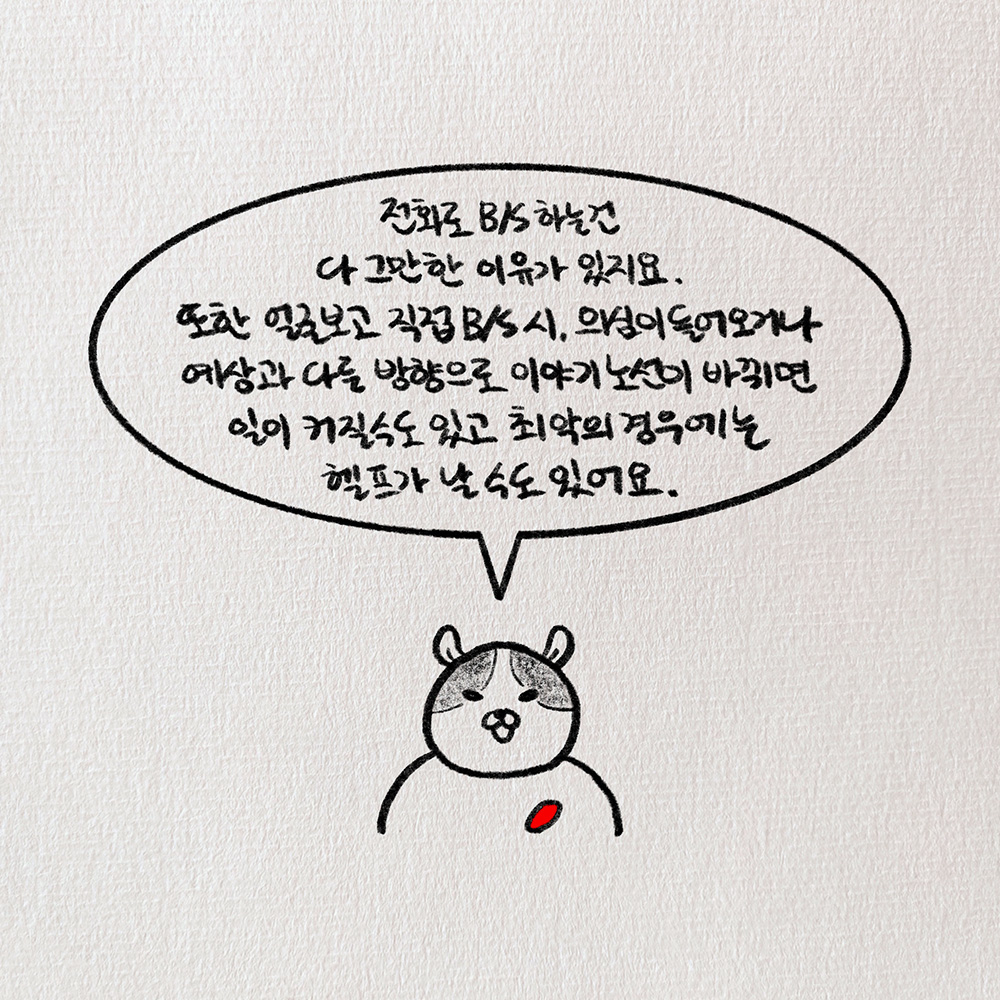 전화로 B/S 하는건
다 그만한 이유가 있지요.
또한 얼굴보고 직접 B/S 시, 의심이 들어오거나
예상과 다를 방향으로 이야기 노선이 바뀌면
일이 커질수도 있고 최악의 경우에는
헬프가 날 수도 있어요.